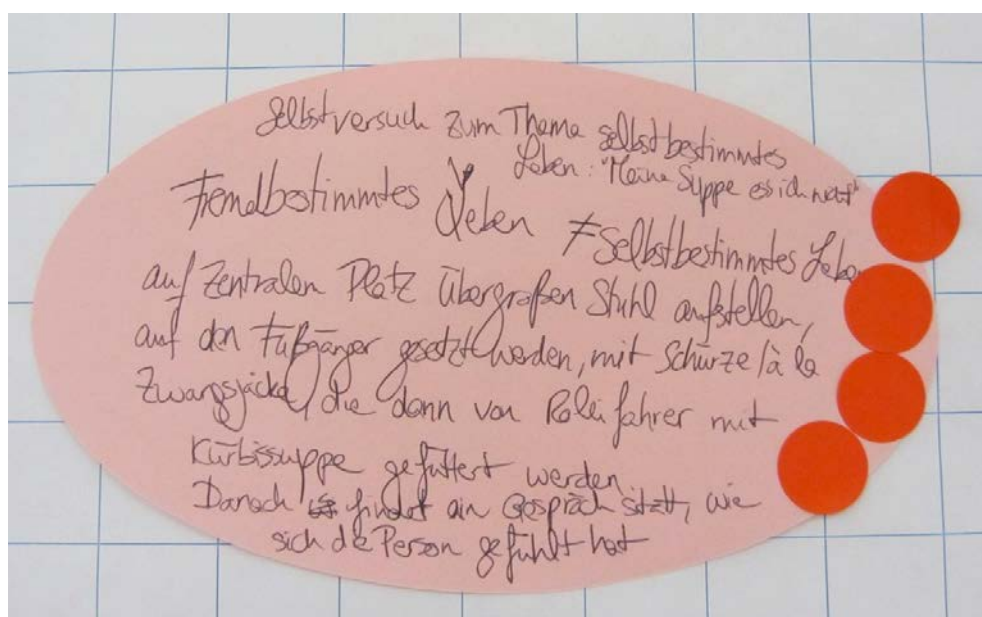 Selbstversuch zum Thema selbstbestimmtes
Leben: "Meine Suppe es ich nett"
Fremdbestimmtes Leben ≠ Selbstbestimmtes Leben
auf Zentralen Platz übergroßen Stuhl aufstellen,
auf den Fußgänger gesetzt werden, mit Schürze/à la
Zwangsjacke, die dann von Rolifahrer mit
Kürbissuppe gefüttert werden.
Danach findet ein Gespräch statt, wie
sich die Person gefühlt hat